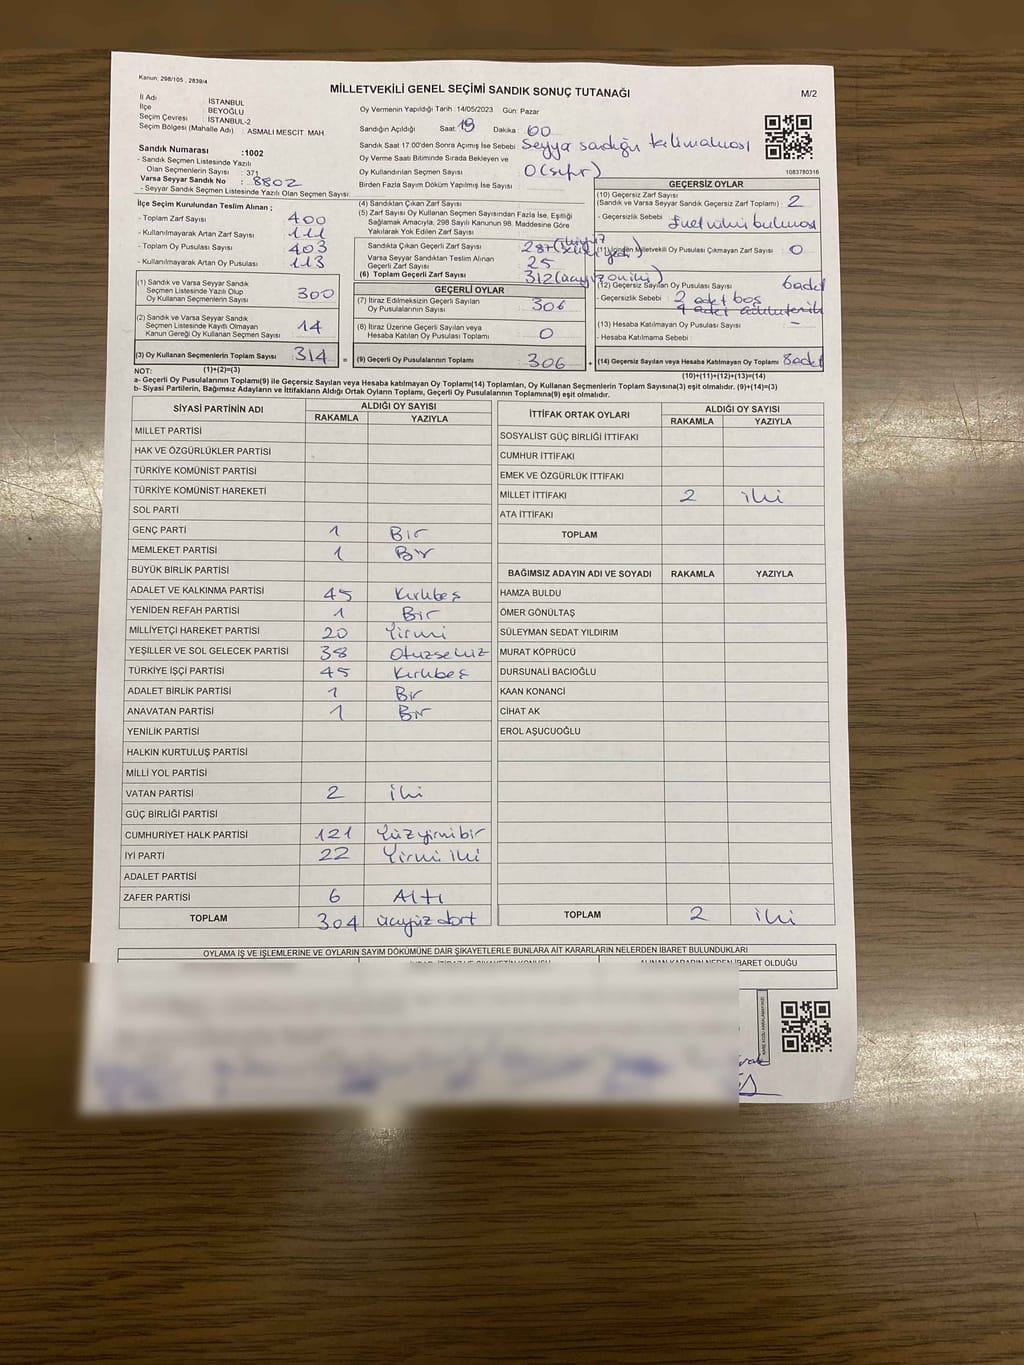 Kanun: 298/105 , 2839/4
MİLLETVEKİLİ GENEL SEÇİMİ SANDIK SONUÇ TUTANAĞI
M/2
İl Adı : İSTANBUL
İlçe : BEYOĞLU
Seçim Çevresi : İSTANBUL-2
Seçim Bölgesi (Mahalle Adı) : ASMALI MESCİT MAH.
Oy Vermenin Yapıldığı Tarih :14/05/2023 Gün: Pazar
Sandığın Açıldığı Saat: 19 Dakika: 00
Sandık Saat 17.00'den Sonra Açımış İse Sebebi :
Oy Verme Saati Bitiminde Sırada Bekleyen ve
Oy Kullandırılan Seçmen Sayısı : 0 (sıfır)
Birden Fazla Sayım Döküm Yapılmış İse Sayısı :
1083780316
Sandık Numarası :1002
- Sandık Seçmen Listesinde Yazılı
Olan Seçmenlerin Sayısı : 371
Varsa Seyyar Sandık No : 8802
- Seyyar Sandık Seçmen Listesinde Yazılı Olan Seçmen Sayısı:
İlçe Seçim Kurulundan Teslim Alınan ;
- Toplam Zarf Sayısı : 400
- Kullanılmayarak Artan Zarf Sayısı : 111
- Toplam Oy Pusulası Sayısı : 403
- Kullanılmayarak Artan Oy Pusulası : 113
(1) Sandık ve Varsa Seyyar Sandık
Seçmen Listesinde Yazılı Olup
Oy Kullanan Seçmenlerin Sayısı : 300
(2) Sandık ve Varsa Seyyar Sandık
Seçmen Listesinde Kayıtlı Olmayan
Kanun Gereği Oy Kullanan Seçmen Sayısı : 14
(3) Oy Kullanan Seçmenlerin Toplam Sayısı 314 =
(1)+(2)=(3)
(4) Sandıktan Çıkan Zarf Sayısı :
(5) Zarf Sayısı Oy Kullanan Seçmen Sayısından Fazla İse, Eşitliği
Sağlamak Amacıyla, 298 Sayılı Kanunun 98. Maddesine Göre
Yakılarak Yok Edilen Zarf Sayısı :
Sandıkta Çıkan Geçerli Zarf Sayısı : 287
Varsa Seyyar Sandıktan Teslim Alınan
Geçerli Zarf Sayısı : 25
(6) Toplam Geçerli Zarf Sayısı : 312 (üçyüzoniki)
GEÇERLİ OYLAR
(7) İtiraz Edilmeksizin Geçerli Sayılan
Oy Pusulalarının Sayısı : 306
(8) İtiraz Üzerine Geçerli Sayılan veya
Hesaba Katılan Oy Pusulası Sayısı : 0
(9) Geçerli Oy Pusulalarının Toplamı : 306 +
GEÇERSİZ OYLAR
(10) Geçersiz Zarf Sayısı
(Sandık ve Varsa Seyyar Sandık Geçersiz Zarf Toplamı) : 2
- Geçersizlik Sebebi :
(11) İçinden Milletvekili Oy Pusulası Çıkmayan Zarf Sayısı : 0
(12) Geçersiz Sayılan Oy Pusulası Sayısı : 6 adet
- Geçersizlik Sebebi : 2 adet boş
4 adet
(13) Hesaba Katılmayan Oy Pusulası Sayısı : -
- Hesaba Katılmama Sebebi :
(14) Geçersiz Sayılan veya Hesaba Katılmayan Oy Toplamı : 8 adet
(10)+(11)+(12)+(13)=(14)
NOT:
a- Geçerli Oy Pusulalarının Toplamı(9) ile Geçersiz Sayılan veya Hesaba katılmayan Oy Toplamı(14) Toplamları, Oy Kullanan Seçmenlerin Toplam Sayısına(3) eşit olmalıdır. (9)+(14)=(3)
b- Siyasi Partilerin, Bağımsız Adayların ve İttifakların Aldığı Ortak Oyların Toplamı, Geçerli Oy Pusulalarının Toplamına(9) eşit olmalıdır.
SİYASİ PARTİNİN ADI ALDIĞI OY SAYISI
RAKAMLA YAZIYLA
MİLLET PARTİSİ
HAK VE ÖZGÜRLÜKLER PARTİSİ
TÜRKİYE KOMÜNİST PARTİSİ
TÜRKİYE KOMÜNİST HAREKETİ
SOL PARTİ
GENÇ PARTİ 1 Bir
MEMLEKET PARTİSİ 1 Bir
BÜYÜK BİRLİK PARTİSİ
ADALET VE KALKINMA PARTİSİ 45 Kırkbeş
YENİDEN REFAH PARTİSİ 1 Bir
MİLLİYETÇİ HAREKET PARTİSİ 20 Yirmi
YEŞİLLER VE SOL GELECEK PARTİSİ 38 Otuzsekiz
TÜRKİYE İŞÇİ PARTİSİ 45 Kırkbeş
ADALET BİRLİK PARTİSİ 1 Bir
ANAVATAN PARTİSİ 1 Bir
YENİLİK PARTİSİ
HALKIN KURTULUŞ PARTİSİ
MİLLİ YOL PARTİSİ
VATAN PARTİSİ 2 iki
GÜÇ BİRLİĞİ PARTİSİ
CUMHURİYET HALK PARTİSİ 121 Yüzyirmibir
İYİ PARTİ 22 Yirmi iki
ADALET PARTİSİ
ZAFER PARTİSİ 6 Altı
TOPLAM 304 üçyüzdört
İTTİFAK ORTAK OYLARI ALDIĞI OY SAYISI
RAKAMLA YAZIYLA
SOSYALİST GÜÇ BİRLİĞİ İTTİFAKI
CUMHUR İTTİFAKI
EMEK VE ÖZGÜRLÜK İTTİFAKI
MİLLET İTTİFAKI 2 iki
ATA İTTİFAKI
TOPLAM
BAĞIMSIZ ADAYIN ADI VE SOYADI RAKAMLA YAZIYLA
HAMZA BULDU
ÖMER GÖNÜLTAŞ
SÜLEYMAN SEDAT YILDIRIM
MURAT KÖPRÜCÜ
DURSUNALİ BACIOĞLU
KAAN KONANCİ
CİHAT AK
EROL AŞUCUOĞLU
TOPLAM 2 iki
OYLAMA İŞ VE İŞLEMLERİNE VE OYLARIN SAYIM DÖKÜMÜNE DAİR ŞİKAYETLERLE BUNLARA AİT KARARLARIN NELERDEN İBARET BULUNDUKLARI
ALINAN KARARIN NEDEN İBARET OLDUĞU